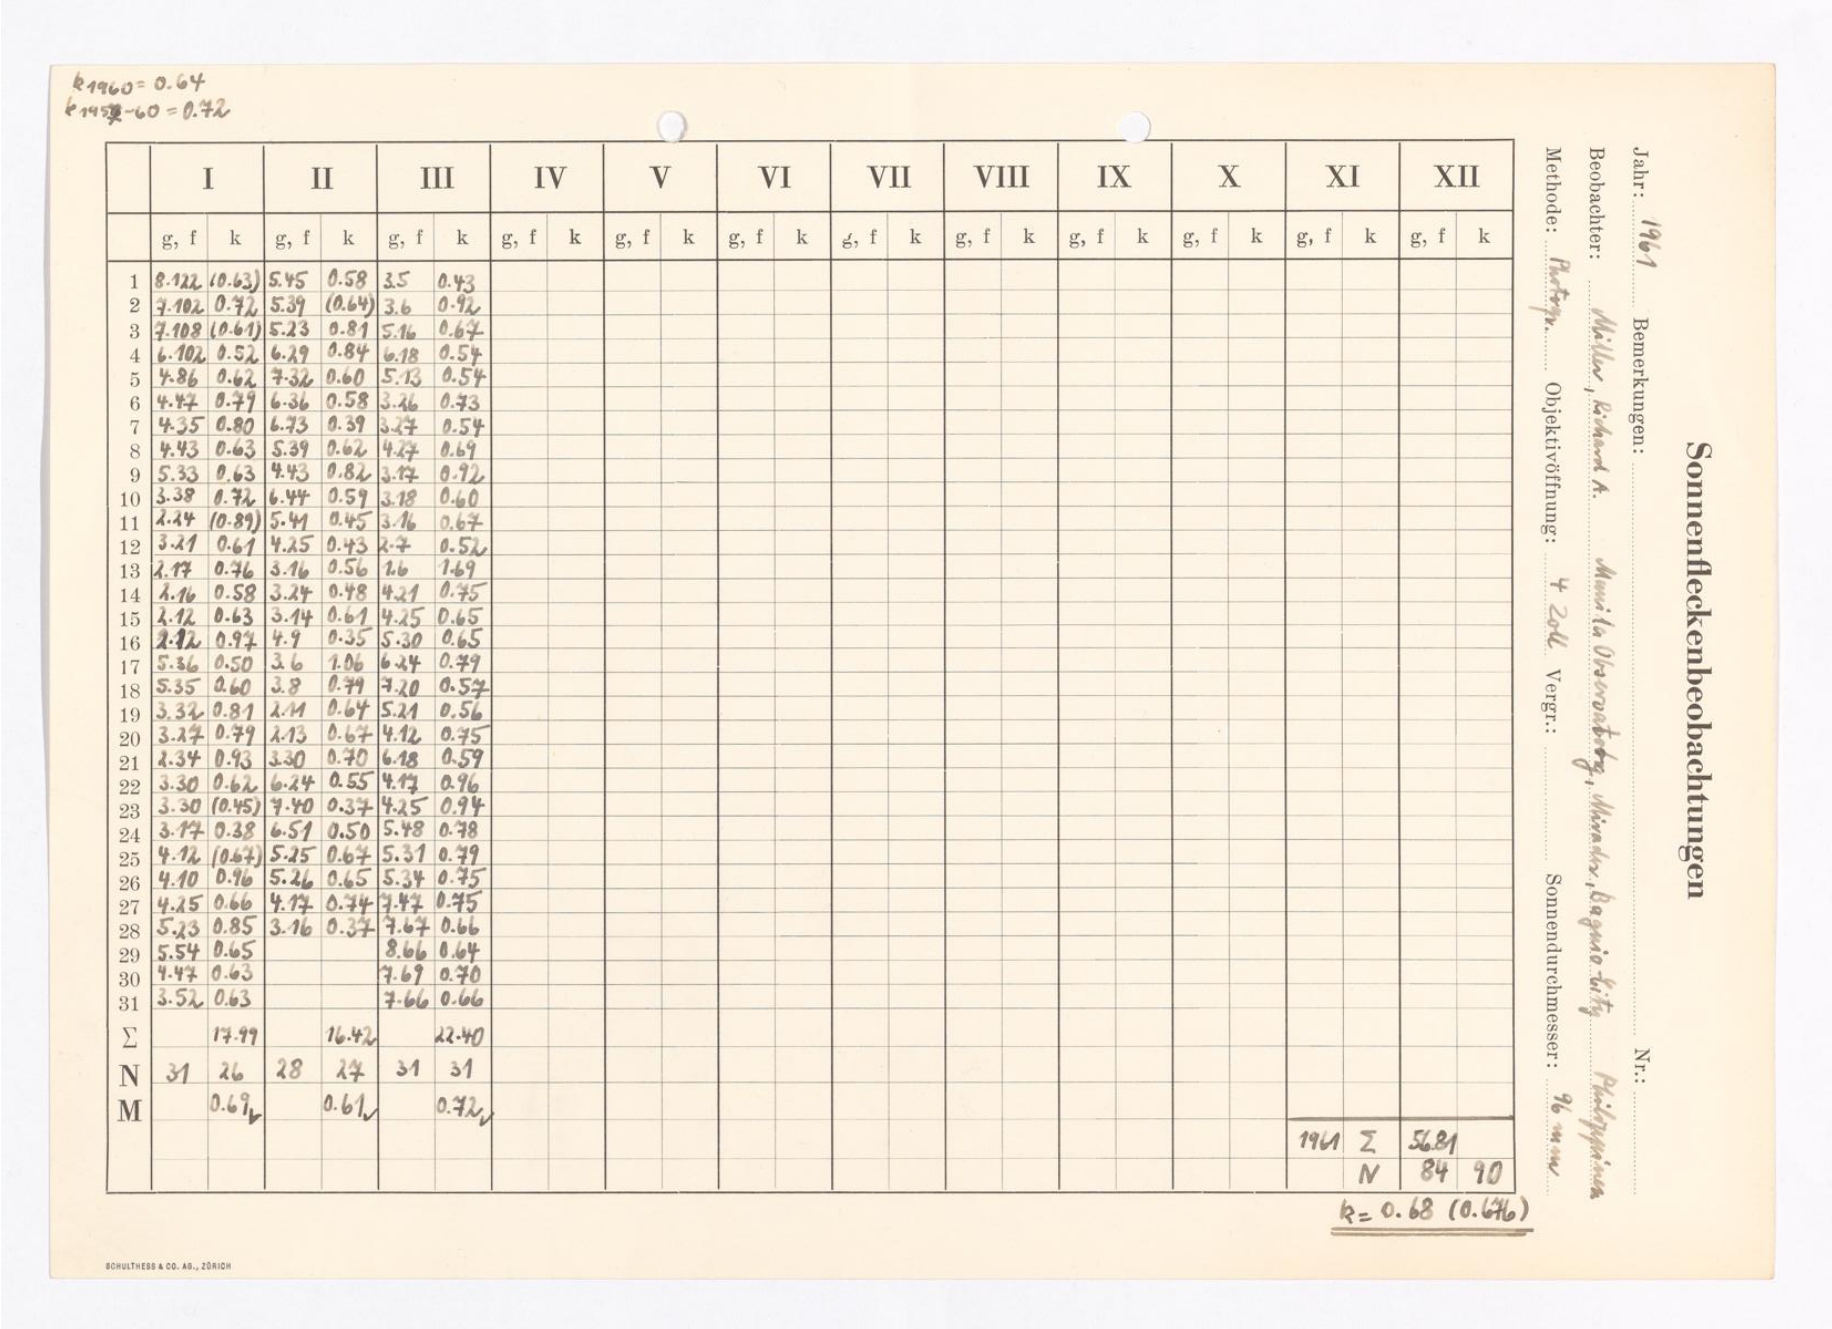 k1960 = 0.64
k1957-60 = 0.72
Sonnenfleckenbeobachtungen
Jahr: 1961 Bemerkungen: Nr.:
Beobachter: Miller, Richard A. Manila Observatory, Mirador, Baguio City Philippinen
Methode: Photogr. Objektivöffnung: 4 Zoll Vergr.: Sonnendurchmesser: 96 mm
I II III IV V VI VII VIII IX X XI XII
g, f k g, f k g, f k g, f k g, f k g, f k g, f k g, f k g, f k g, f k g, f k g, f k
1 8.122 (0.63) 5.45 0.58 3.5 0.43
2 7.102 0.72 5.39 (0.64) 3.6 0.92
3 7.108 (0.61) 5.23 0.81 5.16 0.67
4 6.102 0.52 6.29 0.84 6.18 0.54
5 4.86 0.62 7.32 0.60 5.13 0.54
6 4.47 0.79 6.36 0.58 3.26 0.73
7 4.35 0.80 6.73 0.39 3.27 0.54
8 4.43 0.63 5.39 0.62 4.27 0.69
9 5.33 0.63 4.43 0.82 3.17 0.92
10 3.38 0.72 6.44 0.59 3.18 0.60
11 2.24 (0.89) 5.41 0.45 3.16 0.67
12 3.21 0.61 4.25 0.43 2.7 0.52
13 2.17 0.76 3.16 0.56 1.6 1.69
14 2.16 0.58 3.24 0.48 4.21 0.75
15 2.12 0.63 3.14 0.61 4.25 0.65
16 2.12 0.97 4.9 0.35 5.30 0.65
17 5.36 0.50 3.6 1.06 6.24 0.79
18 5.35 0.60 3.8 0.79 7.20 0.57
19 3.32 0.81 2.11 0.64 5.21 0.56
20 3.27 0.79 2.13 0.67 4.12 0.75
21 2.34 0.93 3.30 0.70 6.18 0.59
22 3.30 0.62 6.24 0.55 4.17 0.96
23 3.30 (0.45) 7.40 0.37 4.25 0.94
24 3.17 0.38 6.51 0.50 5.48 0.78
25 4.12 (0.67) 5.25 0.67 5.31 0.79
26 4.10 0.96 5.26 0.65 5.34 0.75
27 4.25 0.66 4.17 0.74 7.47 0.75
28 5.23 0.85 3.16 0.37 7.67 0.66
29 5.54 0.65 8.66 0.64
30 4.47 0.63 7.69 0.70
31 3.52 0.63 7.66 0.66
Σ 17.99 16.42 22.40
N 31 26 28 27 31 31
M 0.69 0.61 0.72
1961 Σ 56.81
N 84 90
k = 0.68 (0.676)
SCHULTHESS & CO. AG., ZÜRICH